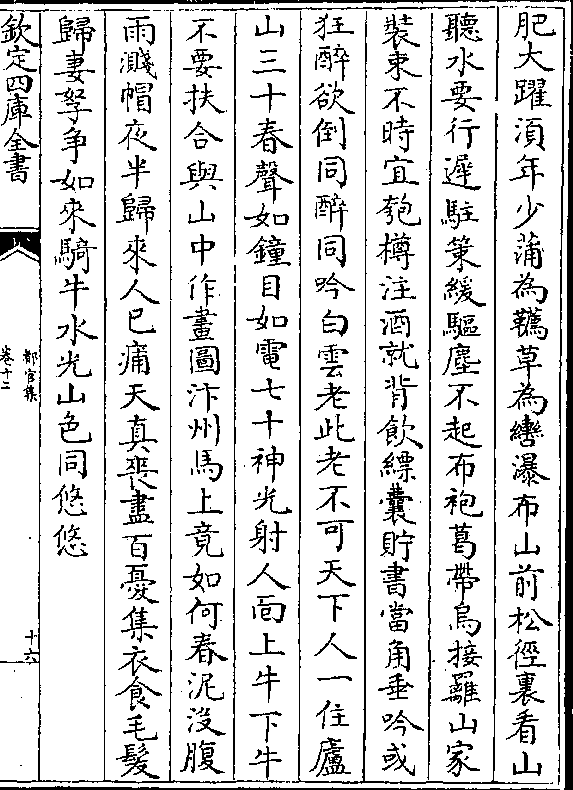 肥大躍湏年少蒲為韉草為轡瀑布山前松徑裏看山
聽水要行遲駐策緩驅塵不起布袍葛帶烏接䍦山家
裝束不時宜匏樽注酒就背飲縹囊貯書當角垂吟或
狂醉欲倒同醉同吟白雲老此老不可天下人一住廬
山三十春聲如鐘目如電七十神光射人面上牛下牛
不要扶合與山中作畫圖汴州馬上竟如何春泥沒腹
雨濺帽夜半歸來人已痡天真喪盡百憂集衣食毛髮
歸妻孥争如來騎牛水光山色同悠悠
欽定四庫全書
鄱官集
卷十二
十六